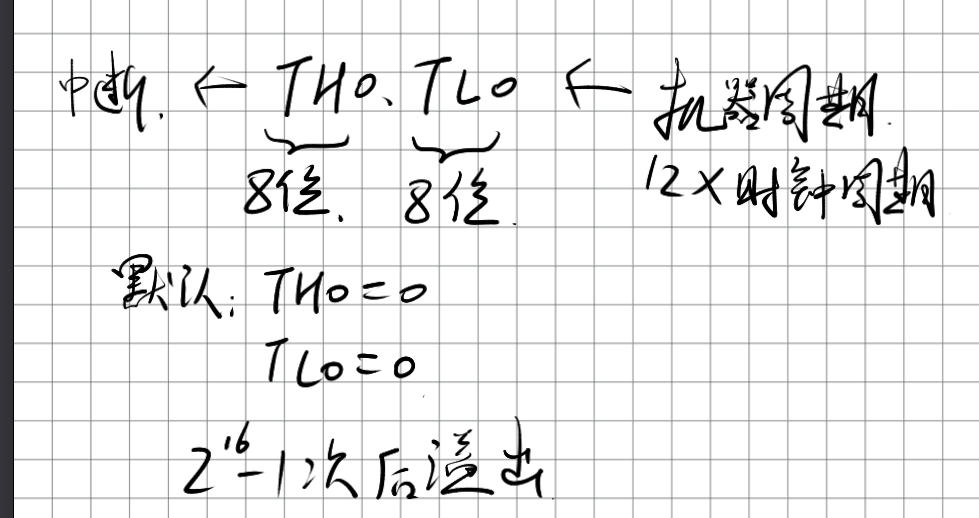 中断. ← TH0、TL0 ← 机器周期.
8位、 8位. 12×时钟周期
默认: TH0=0
TL0=0
2¹⁶-1次后溢出